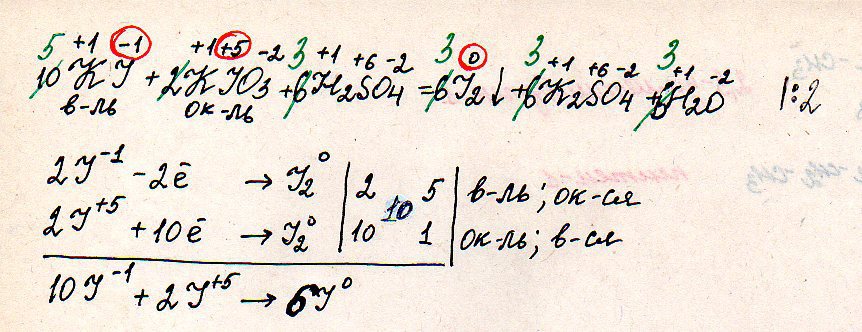 5 +1 -1 +1 +5 -2 3 +1 +6 -2 3 0 3 +1 +6 -2 3 +1 -2
10 KJ + 2KJO3 + 6H2SO4 = 6J2↓ + 6K2SO4 + 6H2O |:2
в-ль ок-ль
2J⁻¹ - 2ē → J2⁰ | 2 10 5 | в-ль; ок-ся
2J⁺⁵ + 10ē → J2⁰ | 10 1 | ок-ль; в-ся
10J⁻¹ + 2J⁺⁵ → 6 J⁰